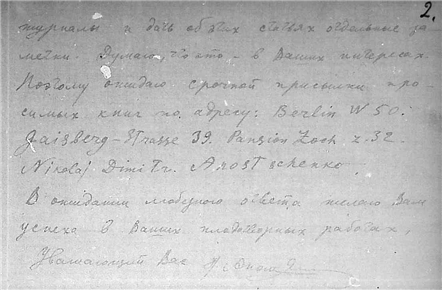 2.
журналы и дать об этих статьях отдельные за
метки. Думаю, что это – в Ваших интересах.
Поэтому ожидаю срочной присылки про-
симых книг по адресу: Berlin W 50:
Gaisberg-Strasse 39. Pansion Zoch z. 32.
Nikolaj Dimitr. Arostschenko.
В ожидании любезного ответа желаю Вам
успеха в Ваших плодотворных работах,
Уважающий Вас